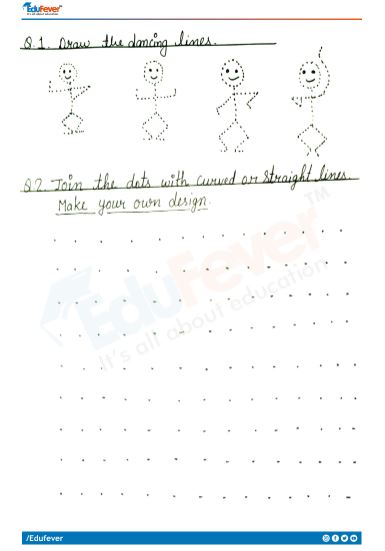 EduFever™
It's all about education
Q.1. Draw the dancing lines.
Q.2. Join the dots with curved or straight lines.
Make your own design.
EduFever™
It's all about education
/Edufever